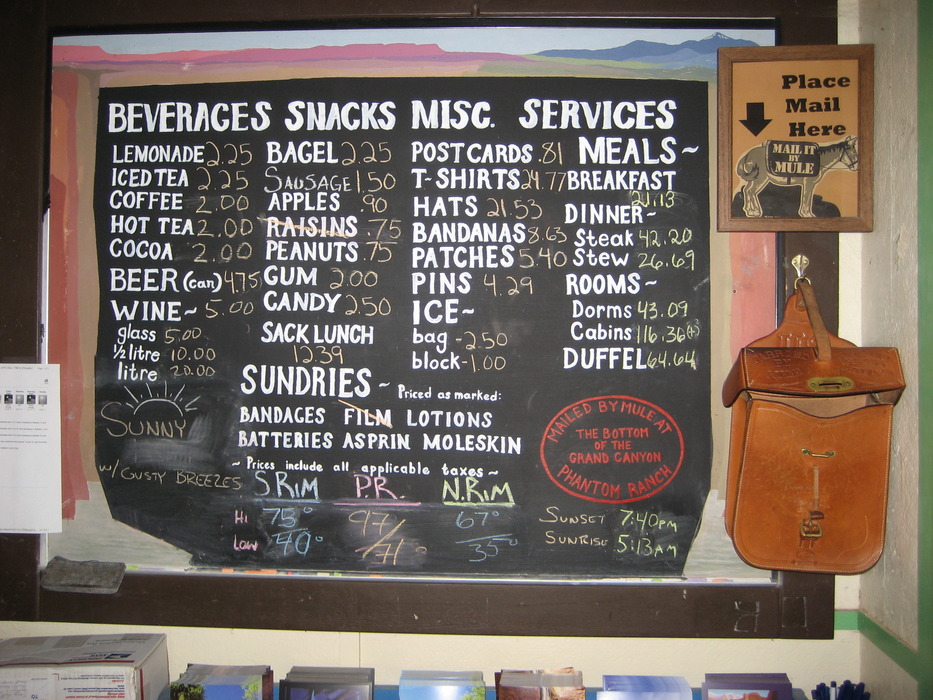 BEVERAGES SNACKS MISC. SERVICES
LEMONADE 2.25
ICED TEA 2.25
COFFEE 2.00
HOT TEA 2.00
COCOA 2.00
BEER (can) 4.75
WINE~ 5.00
glass 5.00
½ litre 10.00
litre 20.00
BAGEL 2.25
SAUSAGE 1.50
APPLES .90
RAISINS .75
PEANUTS .75
GUM 2.00
CANDY 2.50
SACK LUNCH
12.39
POST CARDS .81
T-SHIRTS 24.77
HATS 21.53
BANDANAS 8.63
PATCHES 5.40
PINS 4.29
ICE~
bag -2.50
block-1.00
MEALS~
BREAKFAST
21.13
DINNER~
Steak 42.20
Stew 26.69
ROOMS~
Dorms 43.09
Cabins 116.36(+)
DUFFEL 64.64
SUNDRIES~ Priced as marked:
BANDAGES FILM LOTIONS
BATTERIES ASPRIN MOLESKIN
~Prices include all applicable taxes~
SUNNY
W/ GUSTY BREEZES
S RIM P.R. N.RIM
HI 75° 97/ 67°
LOW 40° 71° 35°
MAILED BY MULE AT
THE BOTTOM
OF THE
GRAND CANYON
PHANTOM RANCH
SUNSET 7:40PM
SUNRISE 5:13AM
Place
Mail
Here
MAIL IT
BY
MULE